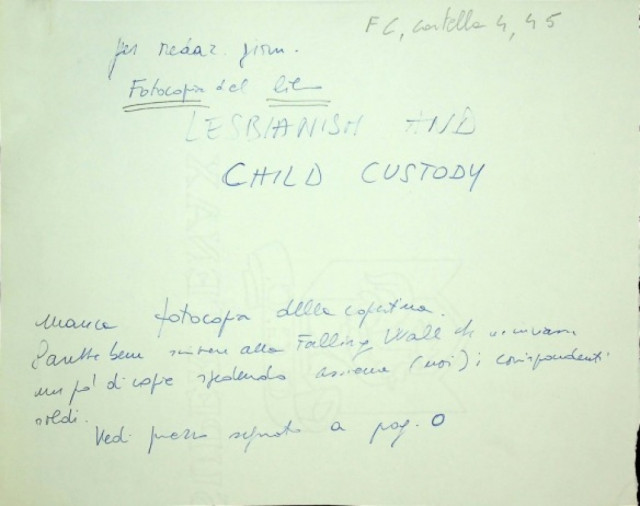 FC, cartella 4, 45
per redaz. giorn.
Fotocopia del
LESBIANISM AND
CHILD CUSTODY
manca fotocopia della copertina.
Sarebbe bene scrivere alla Falling Wall
un po' di copie spedendo assieme (noi) i corrispondenti
soldi.
Vedi prezzo segnato a pag. 0